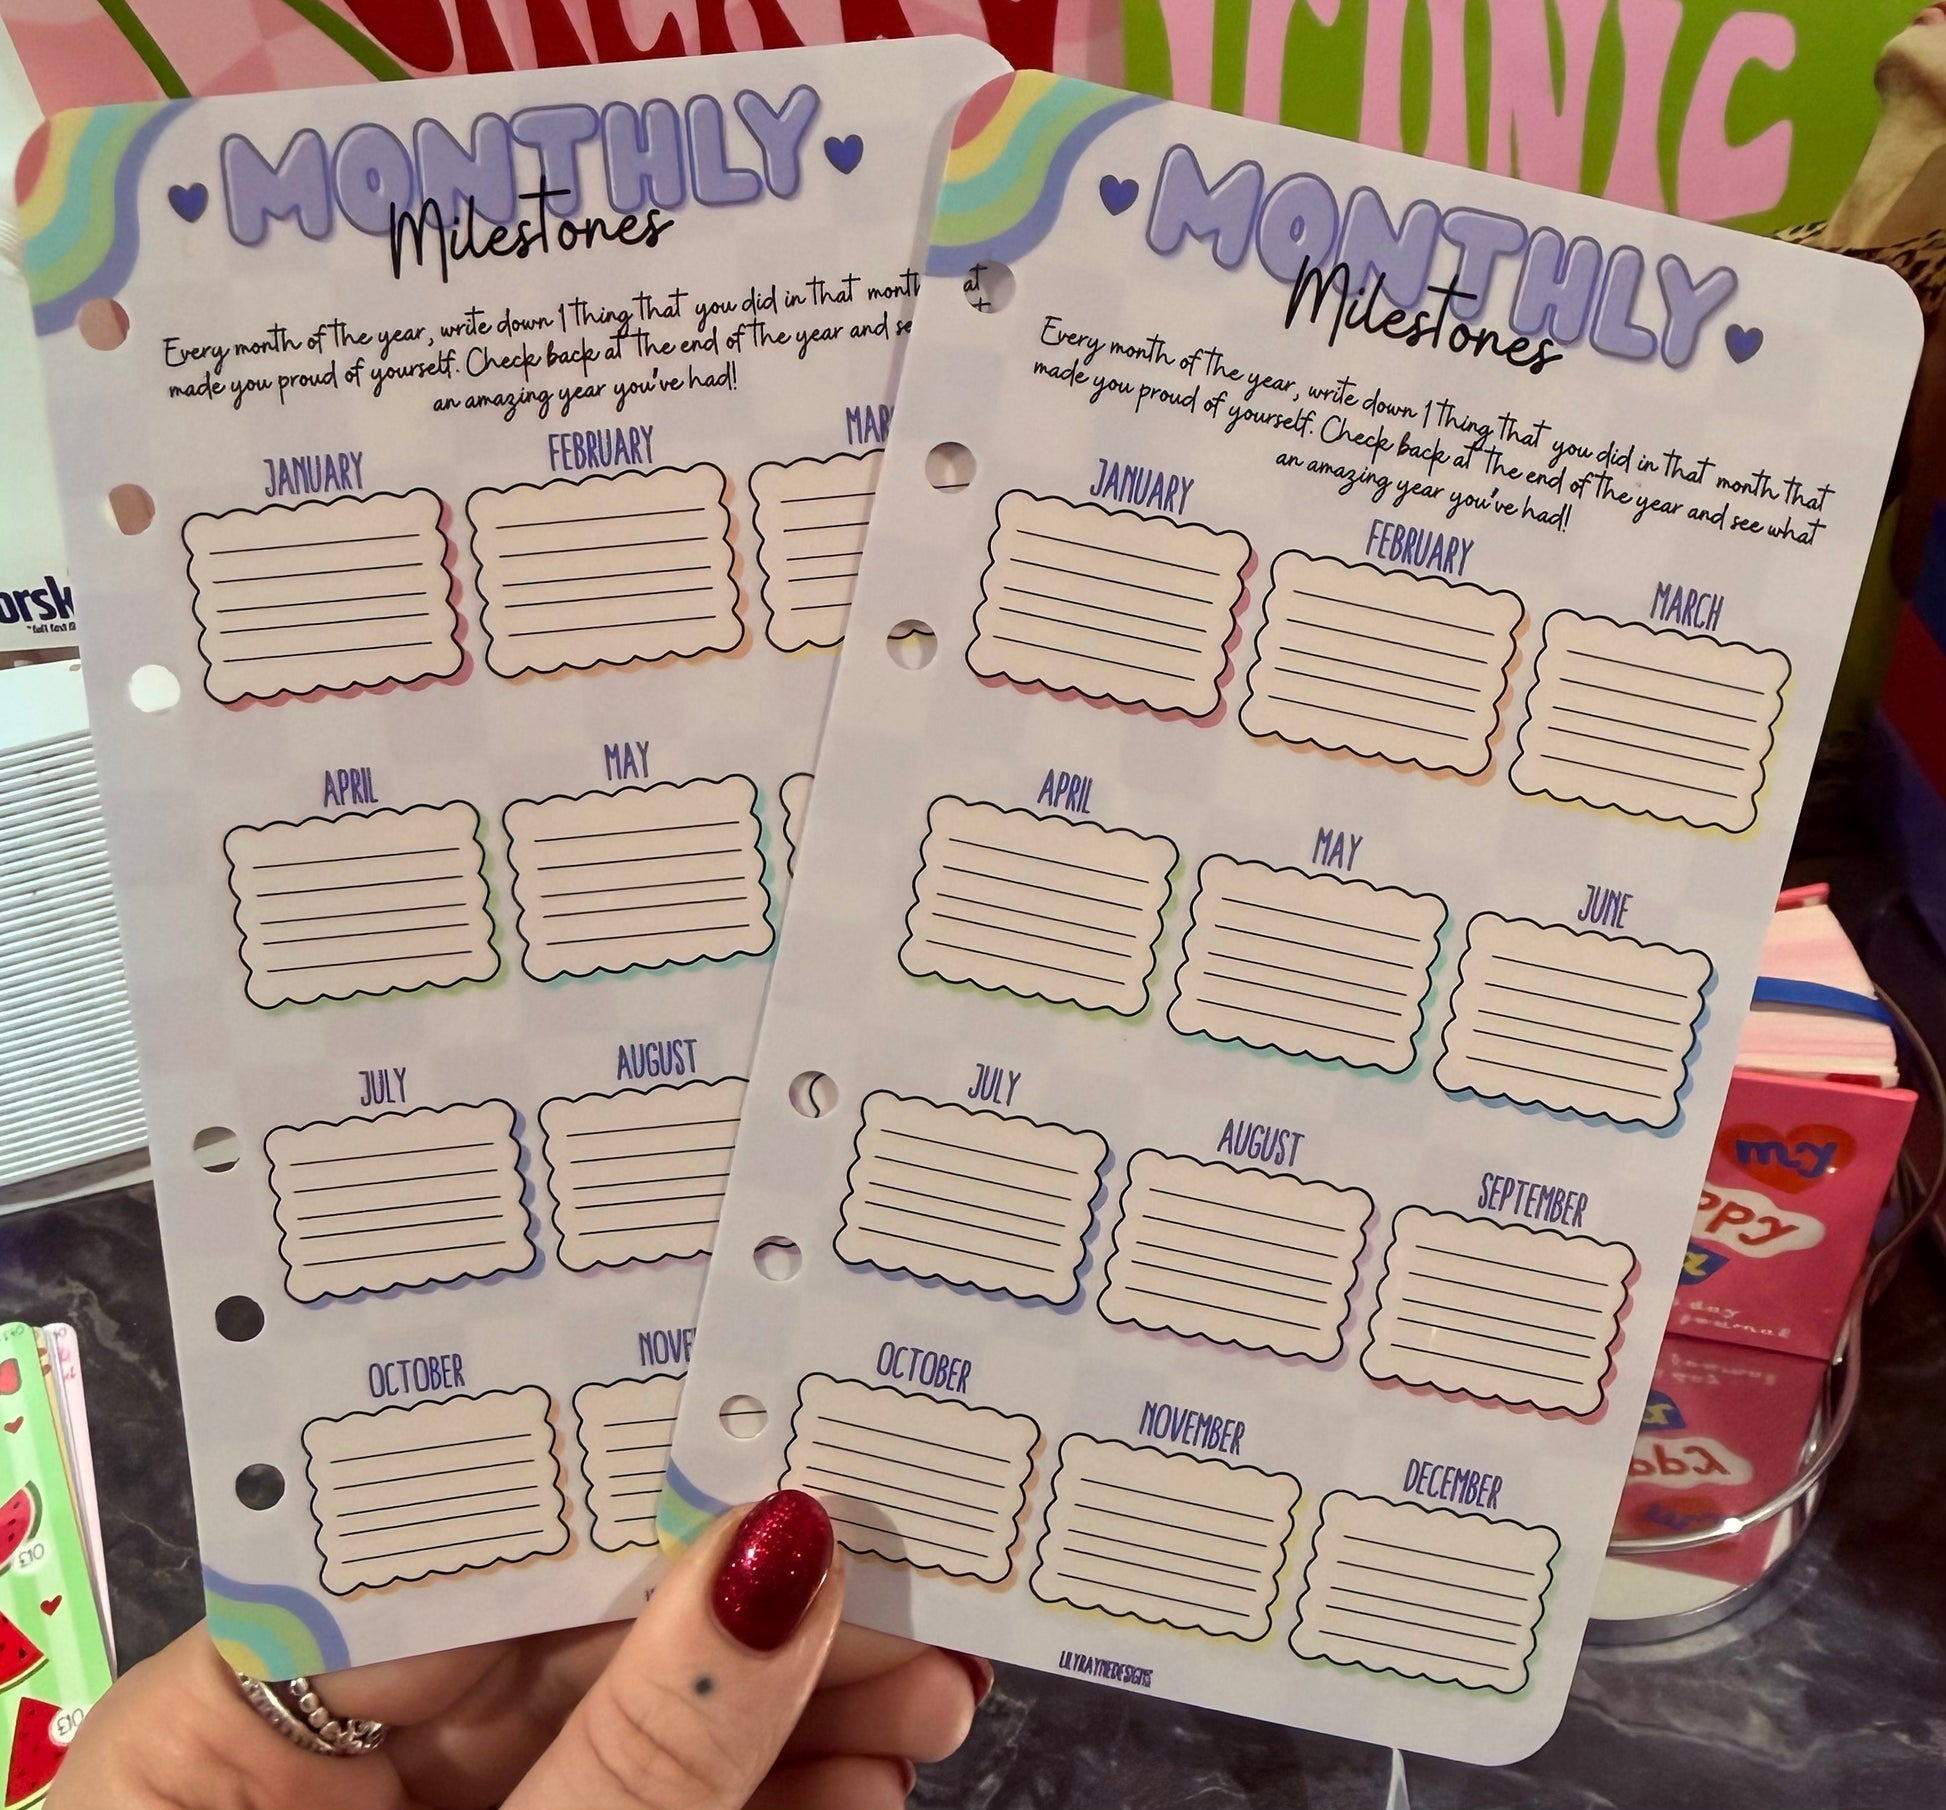 ICONIC
MONTHLY
Milestones
Every month of the year, write down 1 thing that you did in that month
made you proud of yourself. Check back at the end of the year and se
an amazing year you've had!
JANUARY
FEBRUARY
MAR
APRIL
MAY
JULY
AUGUST
OCTOBER
NOVE
at
MONTHLY
Milestones
Every month of the year, write down 1 thing that you did in that month that
made you proud of yourself. Check back at the end of the year and see what
an amazing year you've had!
JANUARY
FEBRUARY
MARCH
APRIL
MAY
JUNE
JULY
AUGUST
SEPTEMBER
OCTOBER
NOVEMBER
DECEMBER
LILYRAYNEDESIGNS
orsk
my
ppy
day
journal
013
013